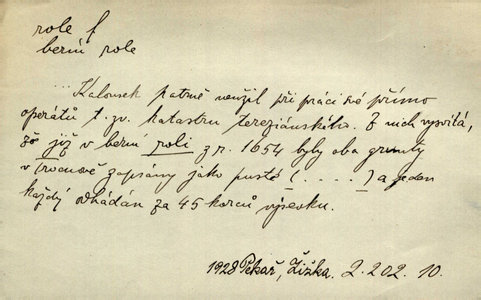 role f
berní role
... Kalousek patrně neužil při práci své přímo
operátů t. zv. katastru tereziánského. Z nich vysvítá,
že již v berní roli z r. 1654 byly oba grunty
v Trocnově zapsány jako pusté (. . . .) a jeden
každý odhádán za 45 korců výsevku.
1928 Pekař, Žižka. 2. 202. 10.